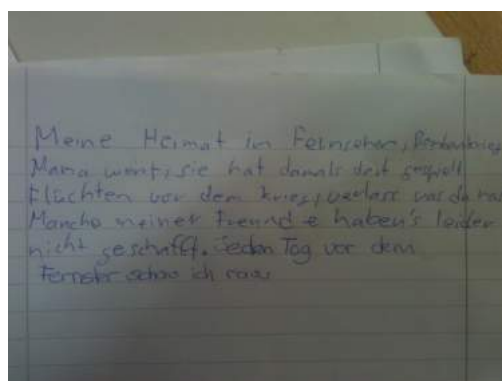 Meine Heimat im Fernsehen, Bombenkrieg
Mama weint, sie hat damals dort gespielt
Flüchten vor dem Krieg, verlass das
Manche meiner Freunde haben's leider
nicht geschafft. Jeden Tag vor dem
Fernster schau ich raus